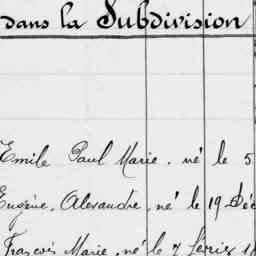 dans la Subdivision
Emile Paul Marie. né le 5
Eugène, Alexandre, né le 19 Déc
François Marie, né le 7